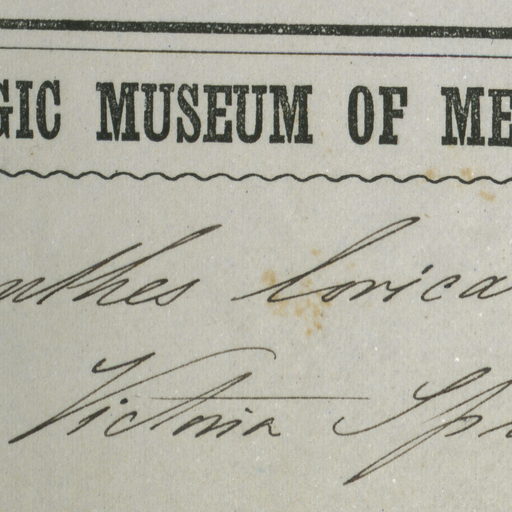 GIC MUSEUM OF ME
nthes lorica
Victoria Sp